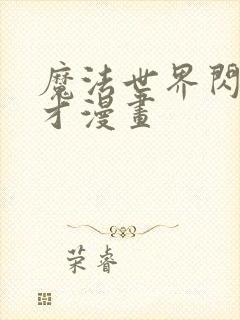 魔法世界閃
才漫畫
荣睿